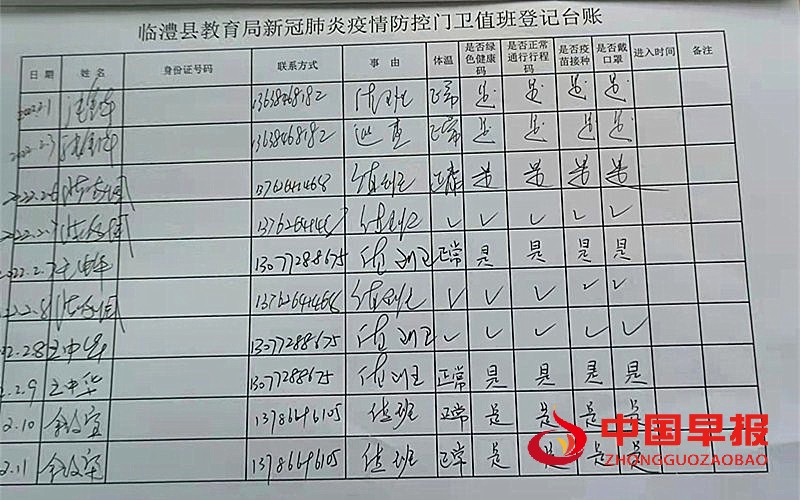 临澧县教育局新冠肺炎疫情防控门卫值班登记台账
日期 姓名 身份证号码 联系方式 事由 体温 是否绿色健康码 是否正常通行行程码 是否疫苗接种 是否戴口罩 进入时间 备注
13684468182 值班 正常 是 是 是 是
13684468182 巡查 正常 是 是 是 是
2022.2.6 值班 正常 是 是 是 是
值班 ✓ ✓ ✓ ✓ ✓
2022.2.7 13077288675 值班 正常 是 是 是 是
2022.2.8 值班 ✓ ✓ ✓ ✓ ✓
2.2.8 王中华 13077288675 值班 ✓ ✓ ✓ ✓ ✓
2.2.9 王中华 13077288675 值班 正常 是 是 是 是
2.10 13786696105 值班 正常 是 是 是 是
2.11 13786696105 值班 正常 是 是 是 是
中国早报
ZHONGGUOZAOBAO